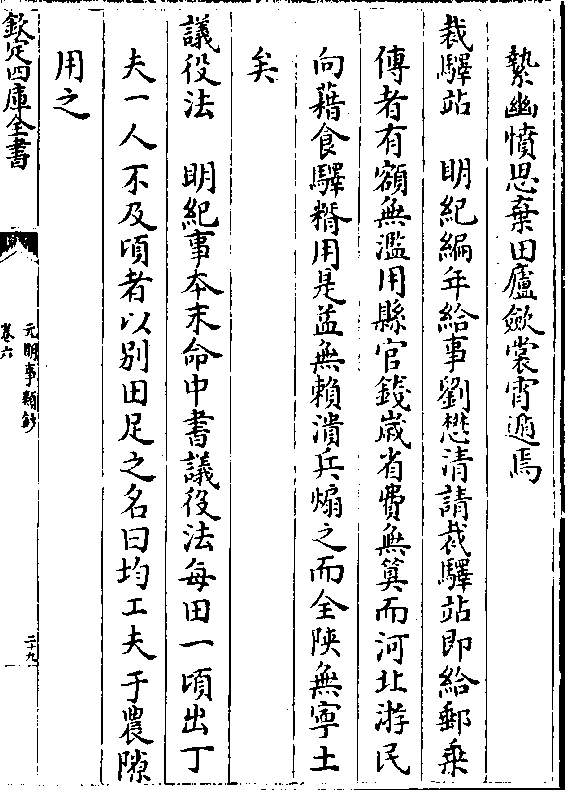 縶幽憤思棄田廬斂裳宵遁焉
裁驛站　明紀編年給事劉懋清請裁驛站即給郵乗
傳者有額無濫用縣官錢歳省費無算而河北游民
向藉食驛糈用是益無賴潰兵煽之而全陜無寧土
矣
議役法　明紀事本末命中書議役法每田一頃出丁
夫一人不及頃者以别田足之名曰均工夫于農隙
用之
欽定四庫全書
元明事類鈔
卷六
二十九